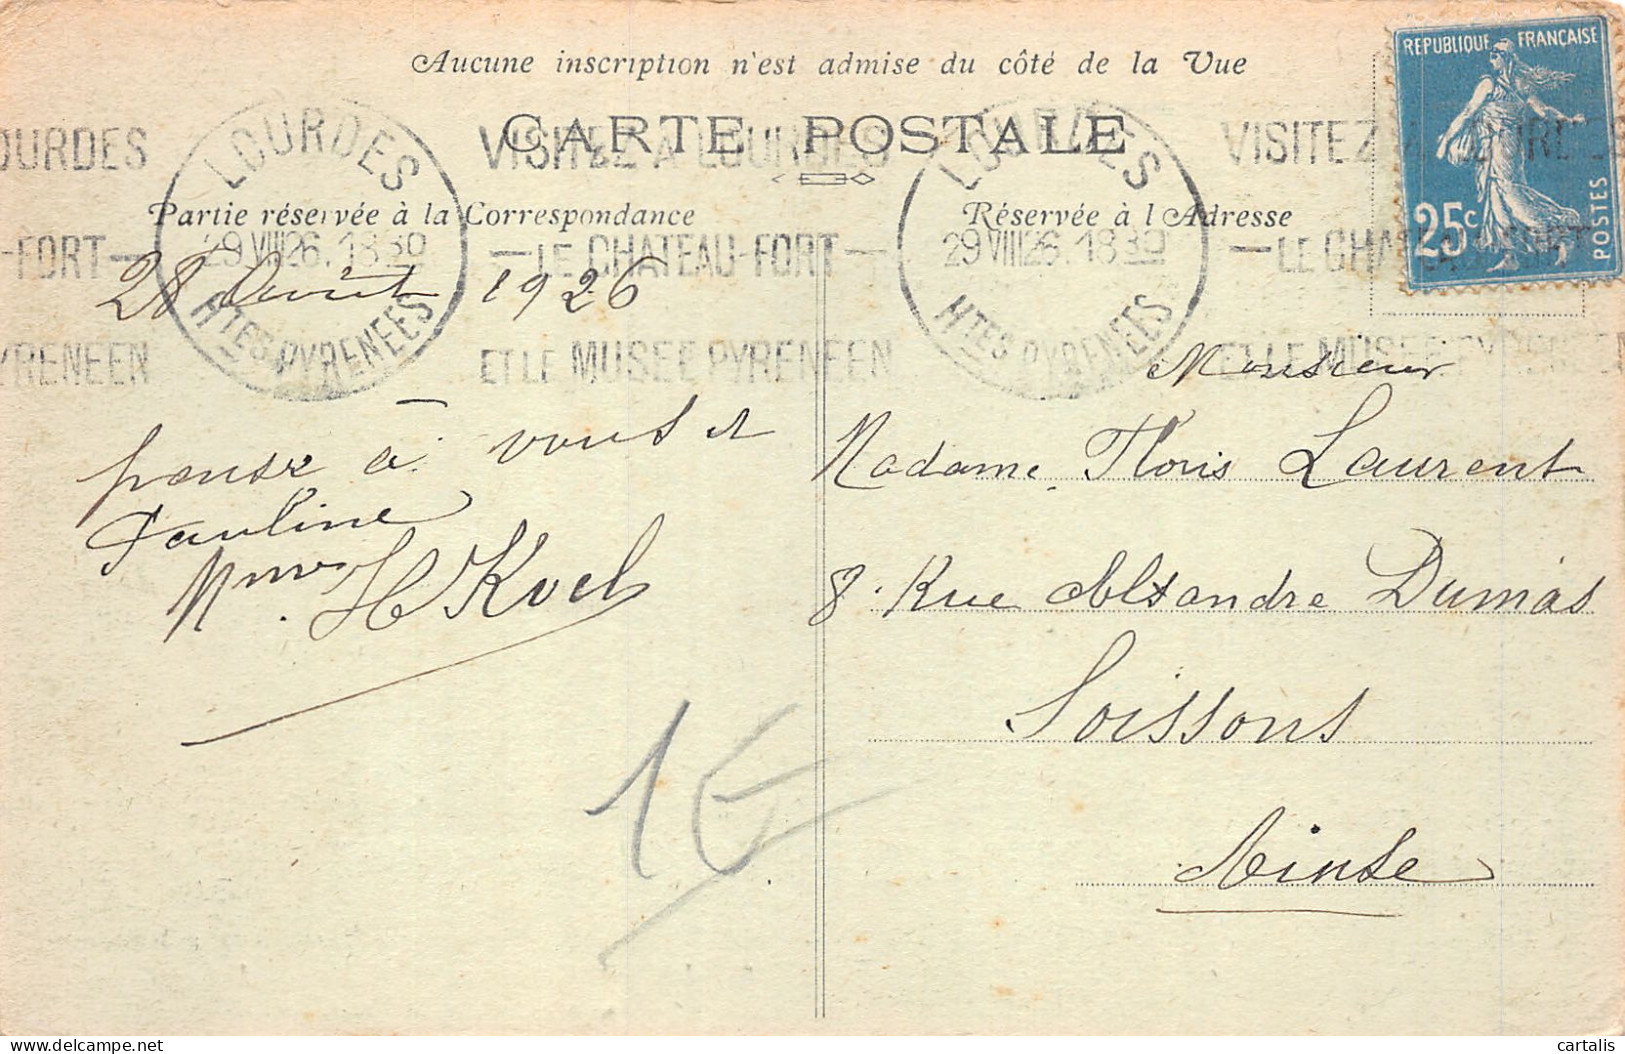 Aucune inscription n'est admise du côté de la Vue
CARTE POSTALE
REPUBLIQUE FRANÇAISE
25c
POSTES
LOURDES
29 VIII 26. 18 30
HTES PYRENEES
VISITEZ A LOURDES
LE CHATEAU-FORT
ET LE MUSEE PYRENEEN
LOURDES
29 VIII 26. 18 30
HTES PYRENEES
VISITEZ A LOURDES
LE CHATEAU-FORT
ET LE MUSEE PYRENEEN
OURDES
-FORT
YRENEEN
Partie réservée à la Correspondance
Réservée à l'Adresse
28 Août 1926
pense à vous et
Pauline
Mme H Kuel
Monsieur
Madame Floris Laurent
8. Rue Alexandre Dumas
Soissons
Ainse
1€
cartalis
delcampe.net